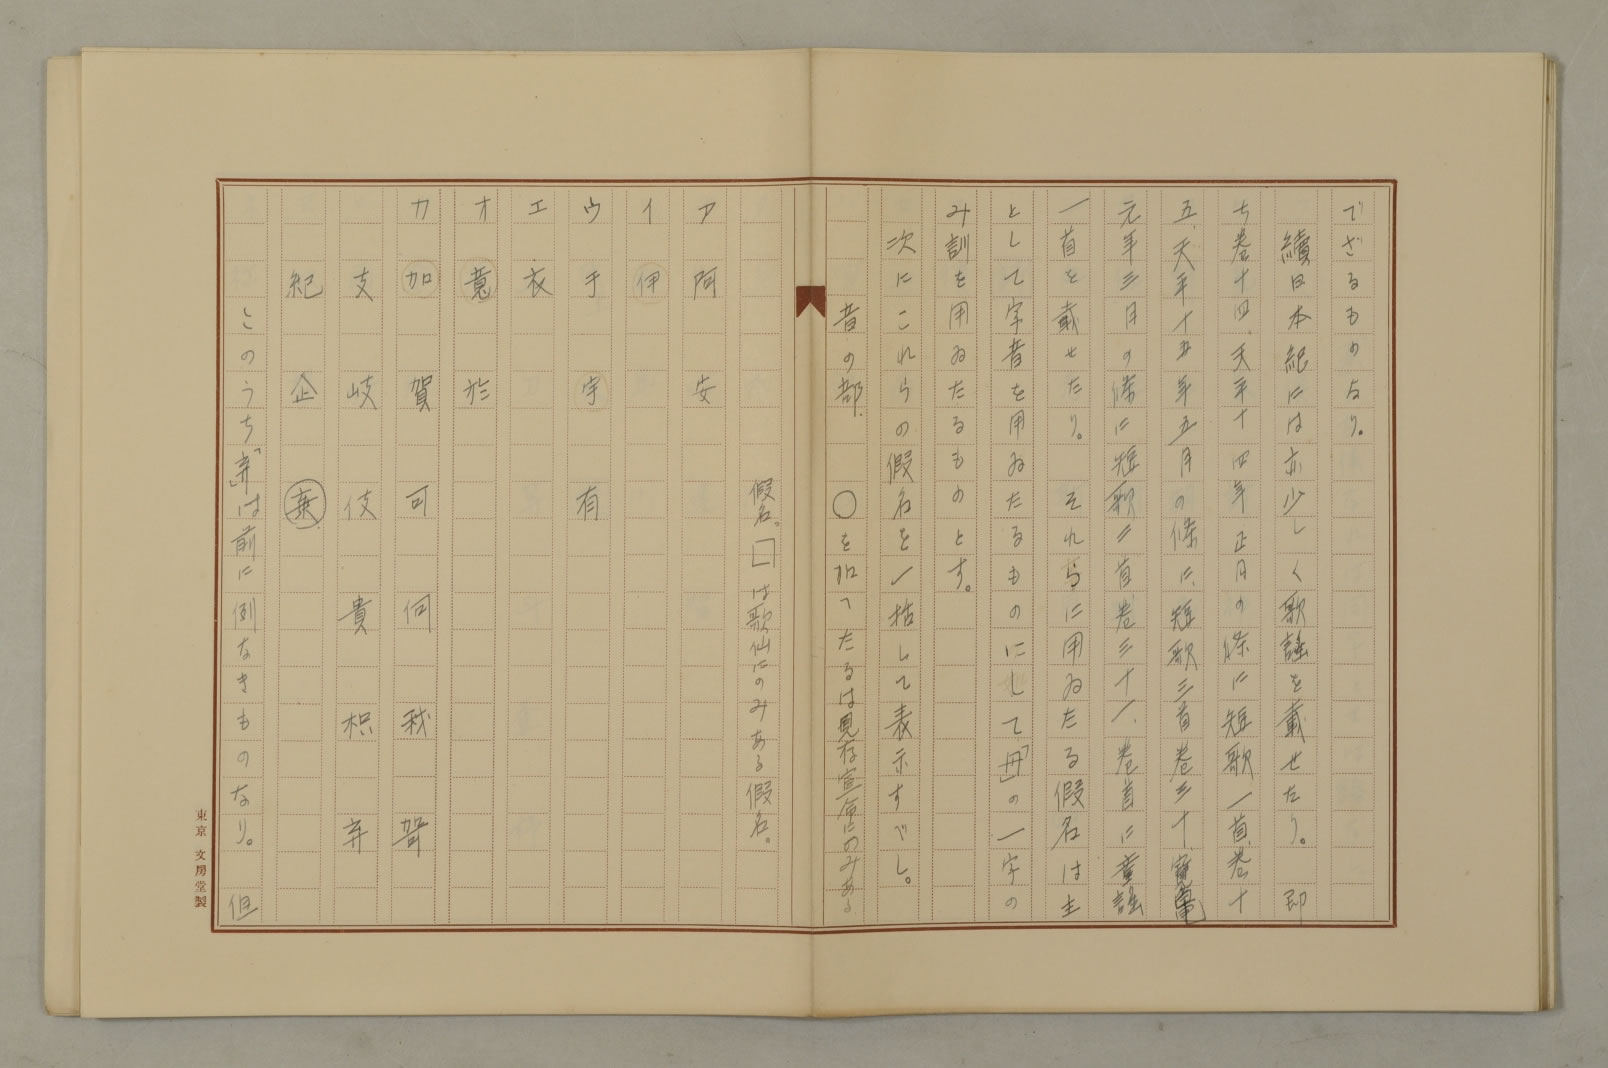 でざるものなり。
續日本紀には亦少しく歌謡を載せたり。即
ち巻十四、天平十四年正月の條に短歌一首、巻十
五、天平十五年五月の條に、短歌三首、巻三十、寳龜
元年三月の條に短歌二首、巻三十一、巻首に童謡
一首を載せたり。それ等に用ゐたる假名は主
として字音を用ゐたるものにして「毋」の一字の
み訓を用ゐたるものとす。
次にこれらの假名を一括して表示すべし。
音の部.　○を加へたるは見存宣命にのみある
假名。□は歌仙にのみある假名。
ア　阿　安
イ　伊
ウ　于　宇　有
エ　衣
オ　意　於
カ　加　賀　可　何　我　賀
支　岐　伎　貴　枳　弃
紀　企　棄
このうち「弃」は前に例なきものなり。但
東京 文房堂製